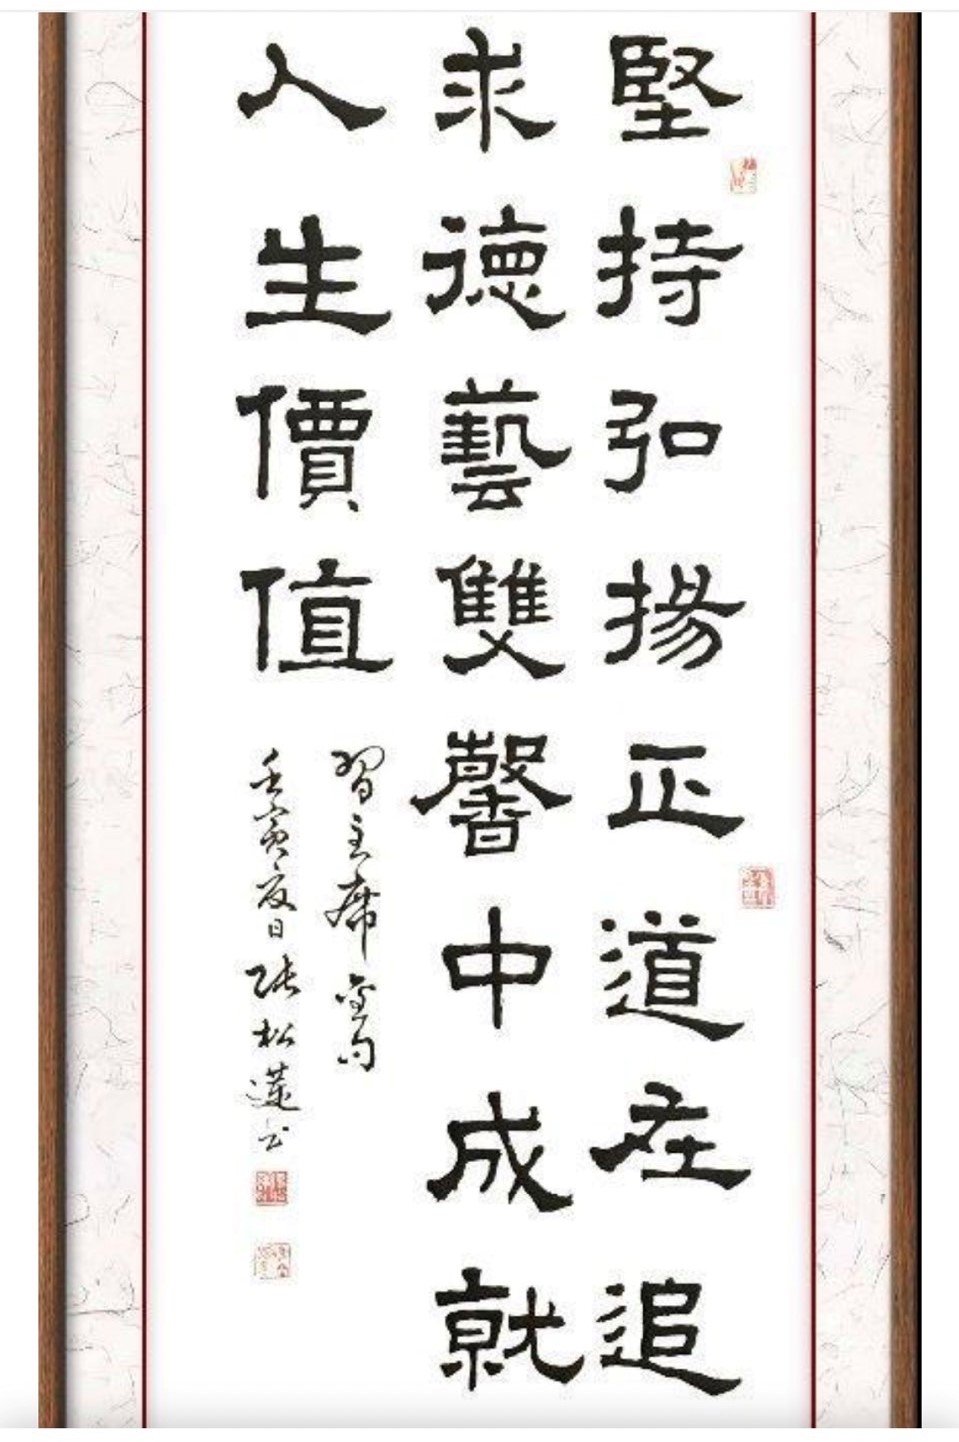 堅持弘揚正道在追
求德藝雙馨中成就
人生價值
習主席金句
壬寅夏日張松蓮書